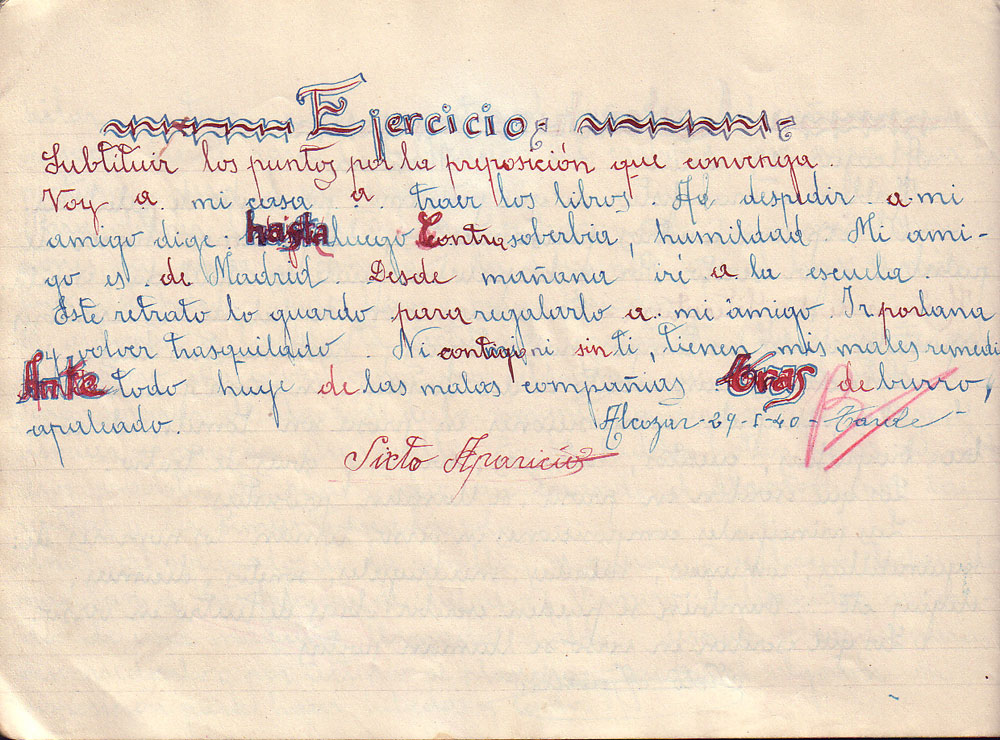 Ejercicio,
Subtituir los puntos por la preposición que convenga
Voy a mi casa a traer los libros. Al despedir a mi
amigo dige hasta luego Contra soberbia, humildad Mi ami-
go es de Madrid. Desde mañana iré a la escuela
Este retrato lo guardo para regalarlo a mi amigo Ir por lana
y volver trasquilado. Ni contigo ni sin ti, tienen mis males remedi
Ante todo huye de las malas compañias. Tras de burro,
apaleado.
Alcozar-29-I-40- Tarde-
Sixto Aparicio